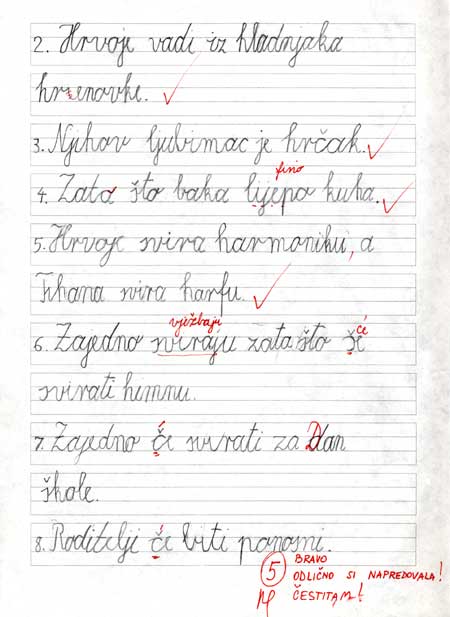 2. Hrvoje vadi iz hladnjaka
hrenovke.
3. Njihov ljubimac je hrčak.
fino
4. Zato što baka lijepo kuha.
5. Hrvoje svira harmoniku, a
Tihana svira harfu.
vježbaju
će
6. Zajedno sviraju zato što še
svirati himnu.
7. Zajedno če svirati za Dan
škole.
8. Roditelji če biti ponosni.
5 BRAVO
ODLIČNO SI NAPREDOVALA!
ČESTITAM!